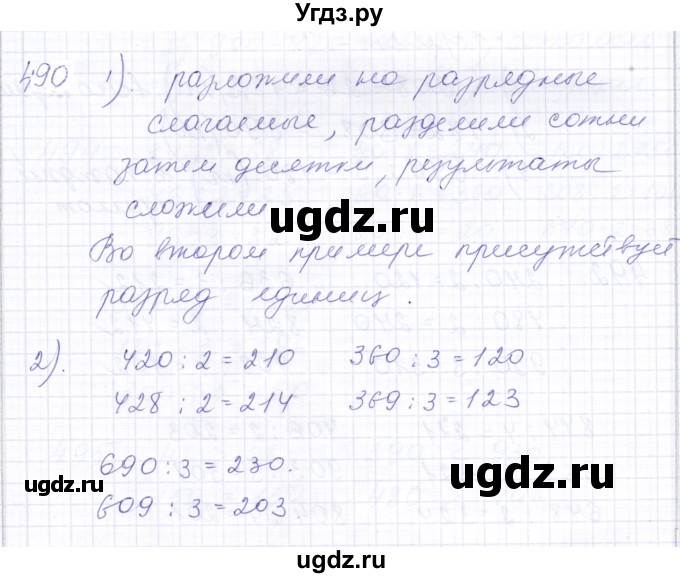 Угдз.ру
490 1). разложили на разрядные
слагаемые, разделили сотни
затем десятки, результаты
сложили
ugdz.ru
Во втором примере присутствует
разряд единиц.
2). 420 : 2 = 210 360 : 3 = 120
428 : 2 = 214 369 : 3 = 123
ugdz.ru
690 : 3 = 230.
ugdz.ru
ugdz.ru
609 : 3 = 203.
ugdz.ru